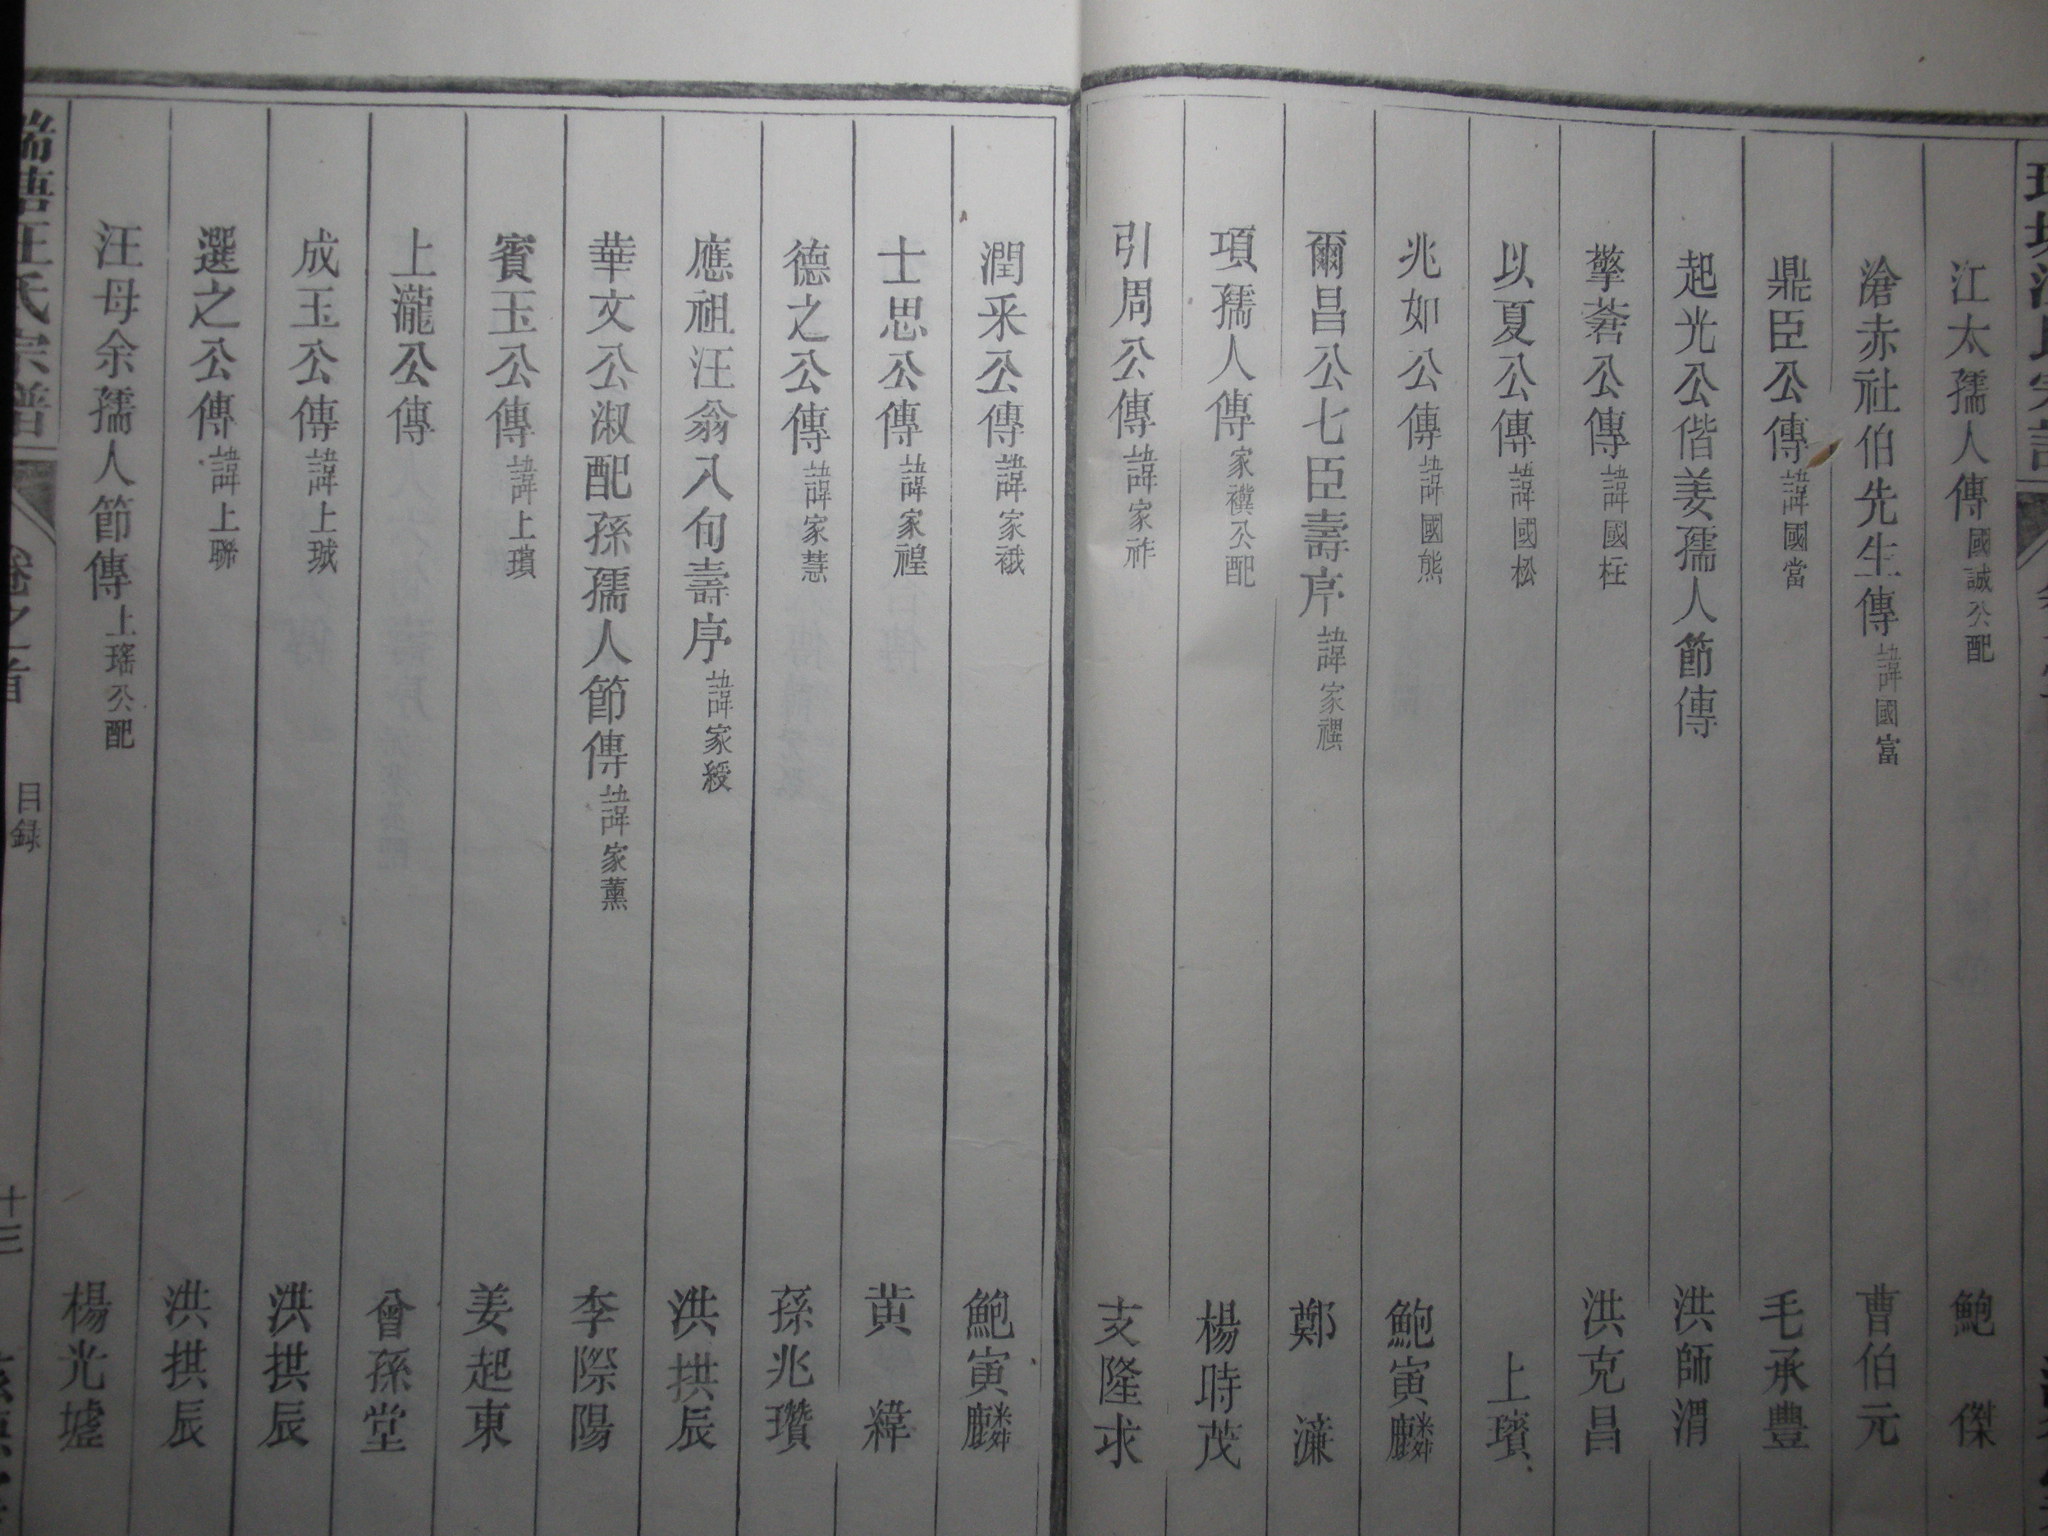 江太孺人傳 國誠公配 鮑 傑
滄赤社伯先生傳 諱國富 曹伯元
鼎臣公傳 諱國當 毛承豐
起光公偕姜孺人節傳 洪師渭
擎蒼公傳 諱國柱 洪克昌
以夏公傳 諱國松 上璸
兆如公傳 諱國熊 鮑寅麟
爾昌公七臣壽序 諱家禩 鄭 濂
項孺人傳 家禩公配 楊時茂
引周公傳 諱家祚 支隆求
潤采公傳 諱家祴 鮑寅麟
士思公傳 諱家禋 黄 緯
德之公傳 諱家慧 孫兆瓚
應祖汪翁八旬壽序 諱家綬 洪拱辰
華文公淑配孫孺人節傳 諱家薰 李際陽
賓玉公傳 諱上瑣 姜起東
上瀧公傳 曾孫堂
成玉公傳 諱上珹 洪拱辰
選之公傳 諱上聯 洪拱辰
汪母余孺人節傳 上瑤公配 楊光墟
汪氏宗譜 卷之首 目録 十三